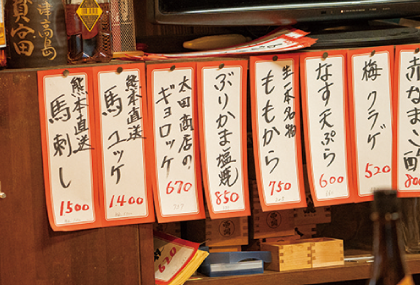 熊本直送
馬刺し
1500
熊本直送
馬ユッケ
1400
太田商店の
ギョロッケ
670
ぶりかま塩焼
850
生一本名物
ももから
750
なす天ぷら
600
梅クラゲ
520
賀谷田